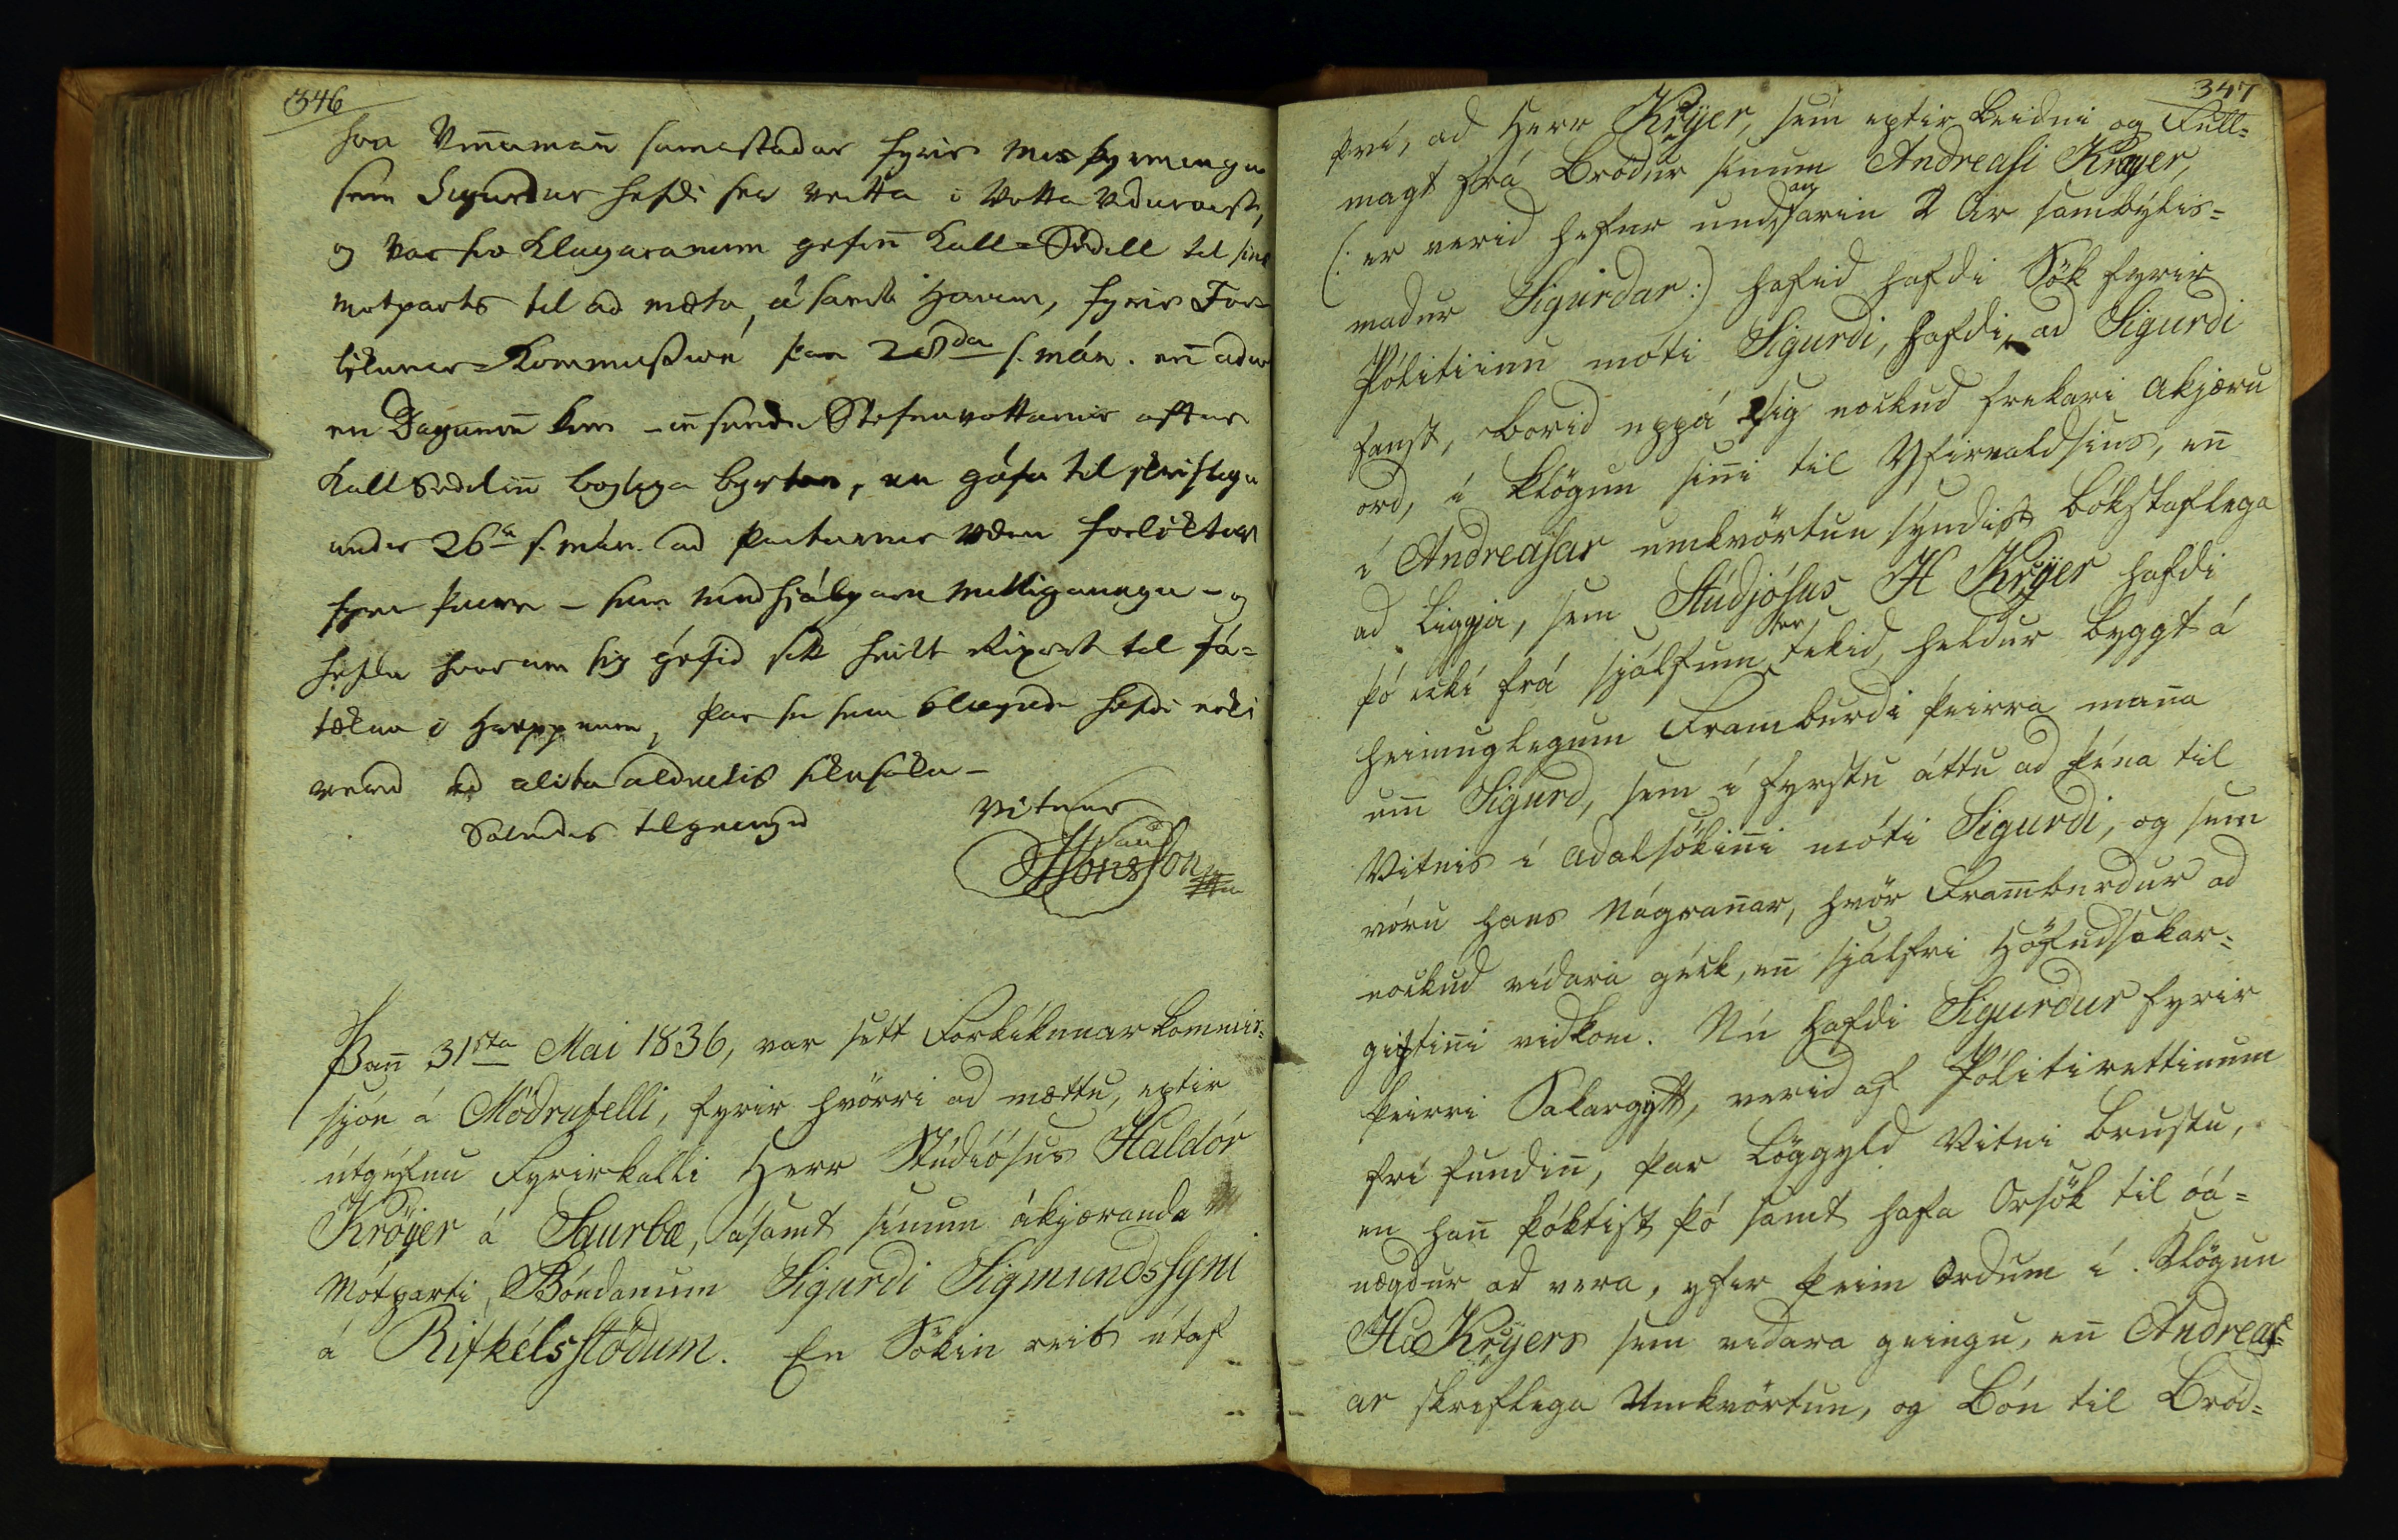 346
hia Vinnumañ samastadar fyrir misþyrmingu
sem Sigurdur hefdi ser veitta i Votta Vdurvist,
og var svo Klagaranum gefiñ Kall-Sedill til sins
motparts til ad mæta, á samt Honum, fyrir For-
likunar-Kommissioné þan 28da s. mán. eñ adur
en Dagurin kom - in sendu Stefnuvottarnir aftur
Kall Sedelinn löglega byrtan, en gáfu til skriflega
under 26a s. mán. ad Partarnir væru forliktar
fyrir þeirra - sem medhjálpara milligaungu - og
hefdu hvor um sig géfid sitt heilt Rixort til fá-
tækra i Hreppnum, þar sa sem klagade hafdi ecki
verid ad alita aldeilis siknsaka -
Soleidis tilgeingid
vitnar
JJonsson
Þañ 31sta Mai 1836, var sett Forlikunarkommis-
sjón á Mödrufelli, fyrir hvörri ad mættu, eptir
útgéfnu Fyrirkalli Herr Stúdiósus Haldór
Kröyer á Saurbæ, ásamt sinum ákjæranda
Mótparti, Bóndanum Sigurdi Sigmundssyni
á Rifkélsstödum. En Sökin reis útaf
347
því, ad Herr Kröyer, sem eptir beidni og Full-
magt frá Brödur sinum Andreasi Kröyer,
(: er verid hefur undanfarin 2 Ar sambýlis-
madur Sigurdar:) hafid hafdi Sök fyrir
Pólitiinu móti Sigurdi, hafdi, ad Sigurdi
fanst, borid uppá sig nockud frekari akjæru
ord, i klögun siñi til Yfirvaldsins, eñ
i Andreasar umkvörtun syndist bókstaflega
ad liggja, sem Stúdjósus H Kröyer hafdi
þó ecki frá sjálfum ser tekid, heldur byggt á
heimuglegum Framburdi þeirra mañna
um Sigurd, sem i fyrstu áttu ad þéna til
Vitnis i adalsökiñi móti Sigurdi, og sem
vóru hans Nágrañar, hvör Framburdur ad
nockud vidara géck, eñ sjálfri Höfudsakar-
giftiñi vidkom. Nú hafdi Sigurdur fyrir
þeirri Sakargift, verid af Pólitirettinum
fri fundiñ, þar Löggyld Vitni brustu,
en hañ þóktist þó samt hafa Orsök til óá-
nægdur ad vera, yfir þeim Ordum i Klögun
H Kröyers sem vidara geingu, eñ Andreas-
ar skriflega Umkvörtun, og Bón til Bród-